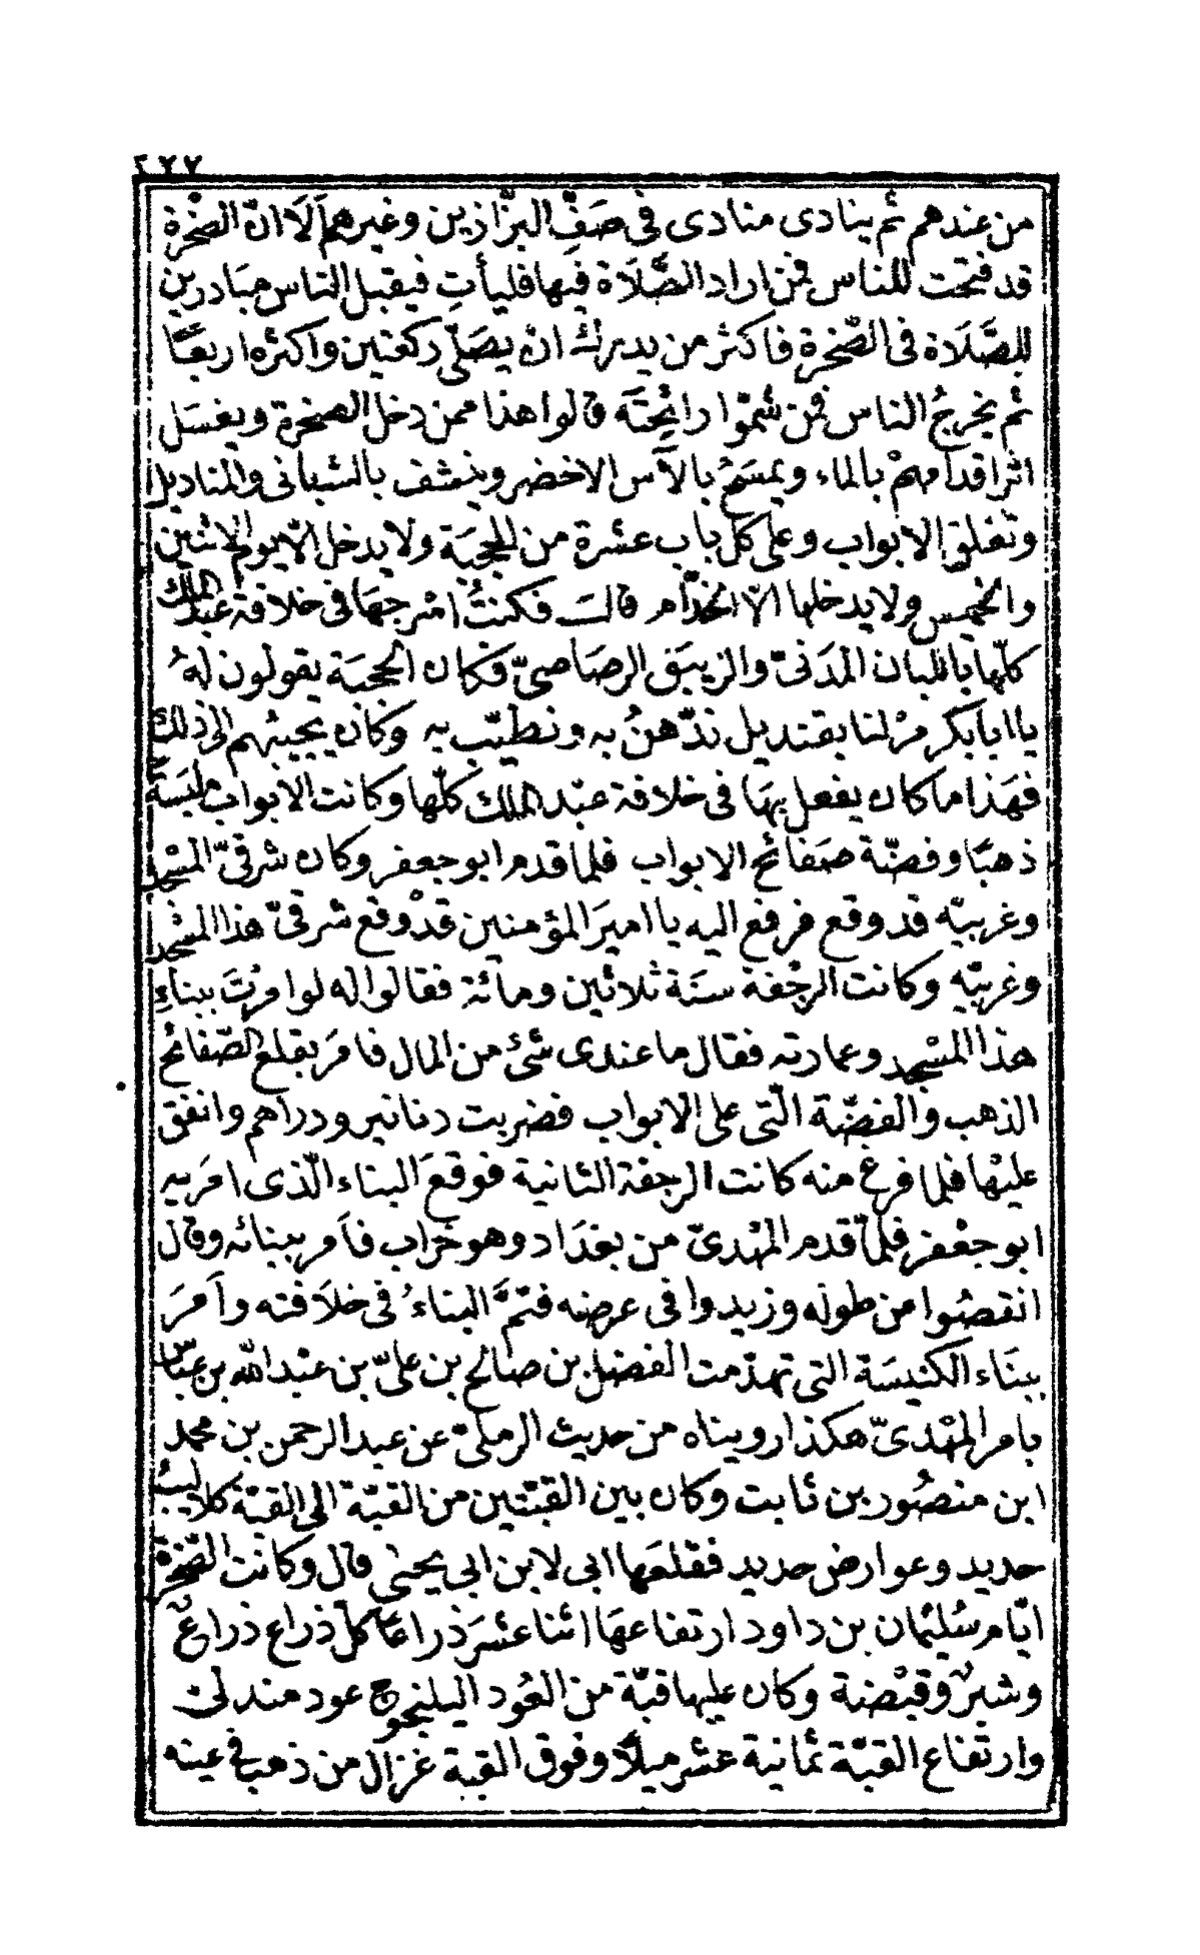 ٢٧٧
من عندهم ثم ينادى منادى فى صَفِّ البزّازين وغيرهم اَلَا انّ الصخْرة
قد فتحت للناس فمن اراد الصَّلَاة فيها فليأتِ فيقبل الناس مبَادرين
للصَّلَاة فى الصّخرة فاكثر من يدرك انْ يصَلّى ركعتين واكثره اربعًا
ثم يخرجُ الناس فمن شمّوا رائحِتَه قالوا هذا ممن دخل الصخرة ويغسَل
اثر اقدامهمْ بالماء ويمسَحُ بالآس الاخضر وينشف بالشبانى والمناديل
وتغلق الابواب وعلى كل باب عشرة من الحجبَة ولا يدخل الّا يوم الاثنين
والخميس ولا يدخلها الّا الخدّام قالت فكنتُ امْرجهَا فى خلافة عبد الملك
كلّها باللبان المدَنىّ والزيبَق الرصَاصىّ فكان الحجبَة يقولون لهُ
يا ابا بكر مرْ لنا بقنديل ندّهنُ به ونطيّب به وكان يجيبُهم الى ذلك
فهَذا ما كان يفعل بهَا فى خلافة عبْد الملك كلّها وكانت الابواب ملبَسَة
ذهبًا وفضّة صَفائح الابواب فلما قدم ابو جعفر وكان شرقىّ المسْجد
وغربيّه قد وقع فرفع اليه يا اميرَ المؤمنين قدْ وقع شرقىّ هذا المسْجد
وغربيّه وكانت الرجْفة سنَة ثلاثين ومائة فقالوا له لوا مرْتَ ببناءِ
هذا المسْجد وعمارته فقال ما عندى شئ من المال فامَر بقلع الصّفائح
الذهب والفضّة الّتى على الابواب فضربت دنانير ودراهم وانفق
عليْها فلما فرغ منه كانت الرجفة الثانية فوقعَ البناء الّذى امَر به
ابو جعْفر فلمّا قدم المهْدىّ من بغدَاد وهو خرَاب فاَمر ببنائه وقال
انقصُوا من طوله وزيدوا فى عرضه فتمَّ البناءُ فى خلَافته واَمرَ
ببنَاء الكنيسَة التى تهدّمت الفضل بن صَالح بن علىّ بن عبْد اللّه بن عبّاس
بامر المهْدىّ هكذا رويناه من حديث الرملىّ عن عبد الرحمن بن محمد
ابن منصُور بن ثابت وكان بين القبّتين من القبّة الى القبّة كلاليبُ
حديد وعوارض حديد فقلعَها ابى لابن ابى يحيى قال وكانت الصّخرة
ايّام سُليْمان بن داود ارتفاعهَا اثنا عشَر ذراعًا كلّ ذراع ذراعٌ
وشبرٌ وقبْضة وكان عليها قبّة من العُود اليلنجوج عود مندلىّ
وارتفاع القبَّة ثمانية عشر ميلًا وفوق القبة غزال من ذهب فى عينه